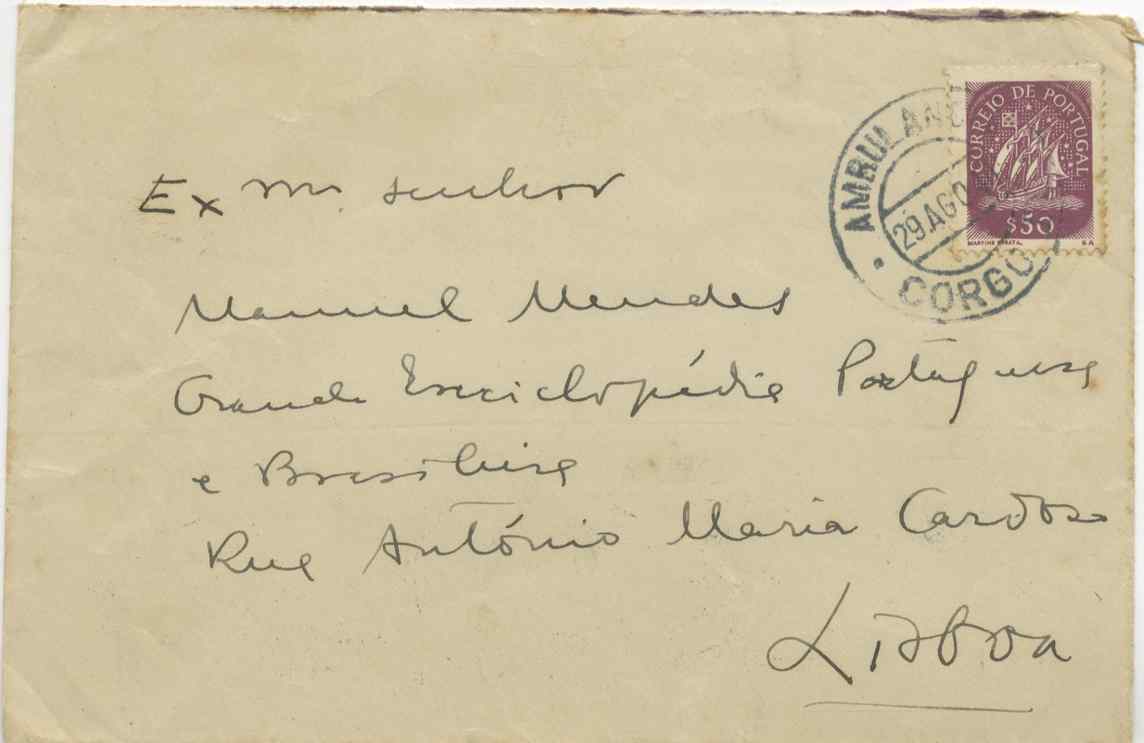 CORREIO DE PORTUGAL
$50
MARTINS BARATA.
AMBULANC
29.AGO
CORGO
Exmo. senhor
Manuel Mendes
Grande Enciclopédia Portuguesa
e Brasileira
Rua António Maria Cardoso
Lisboa